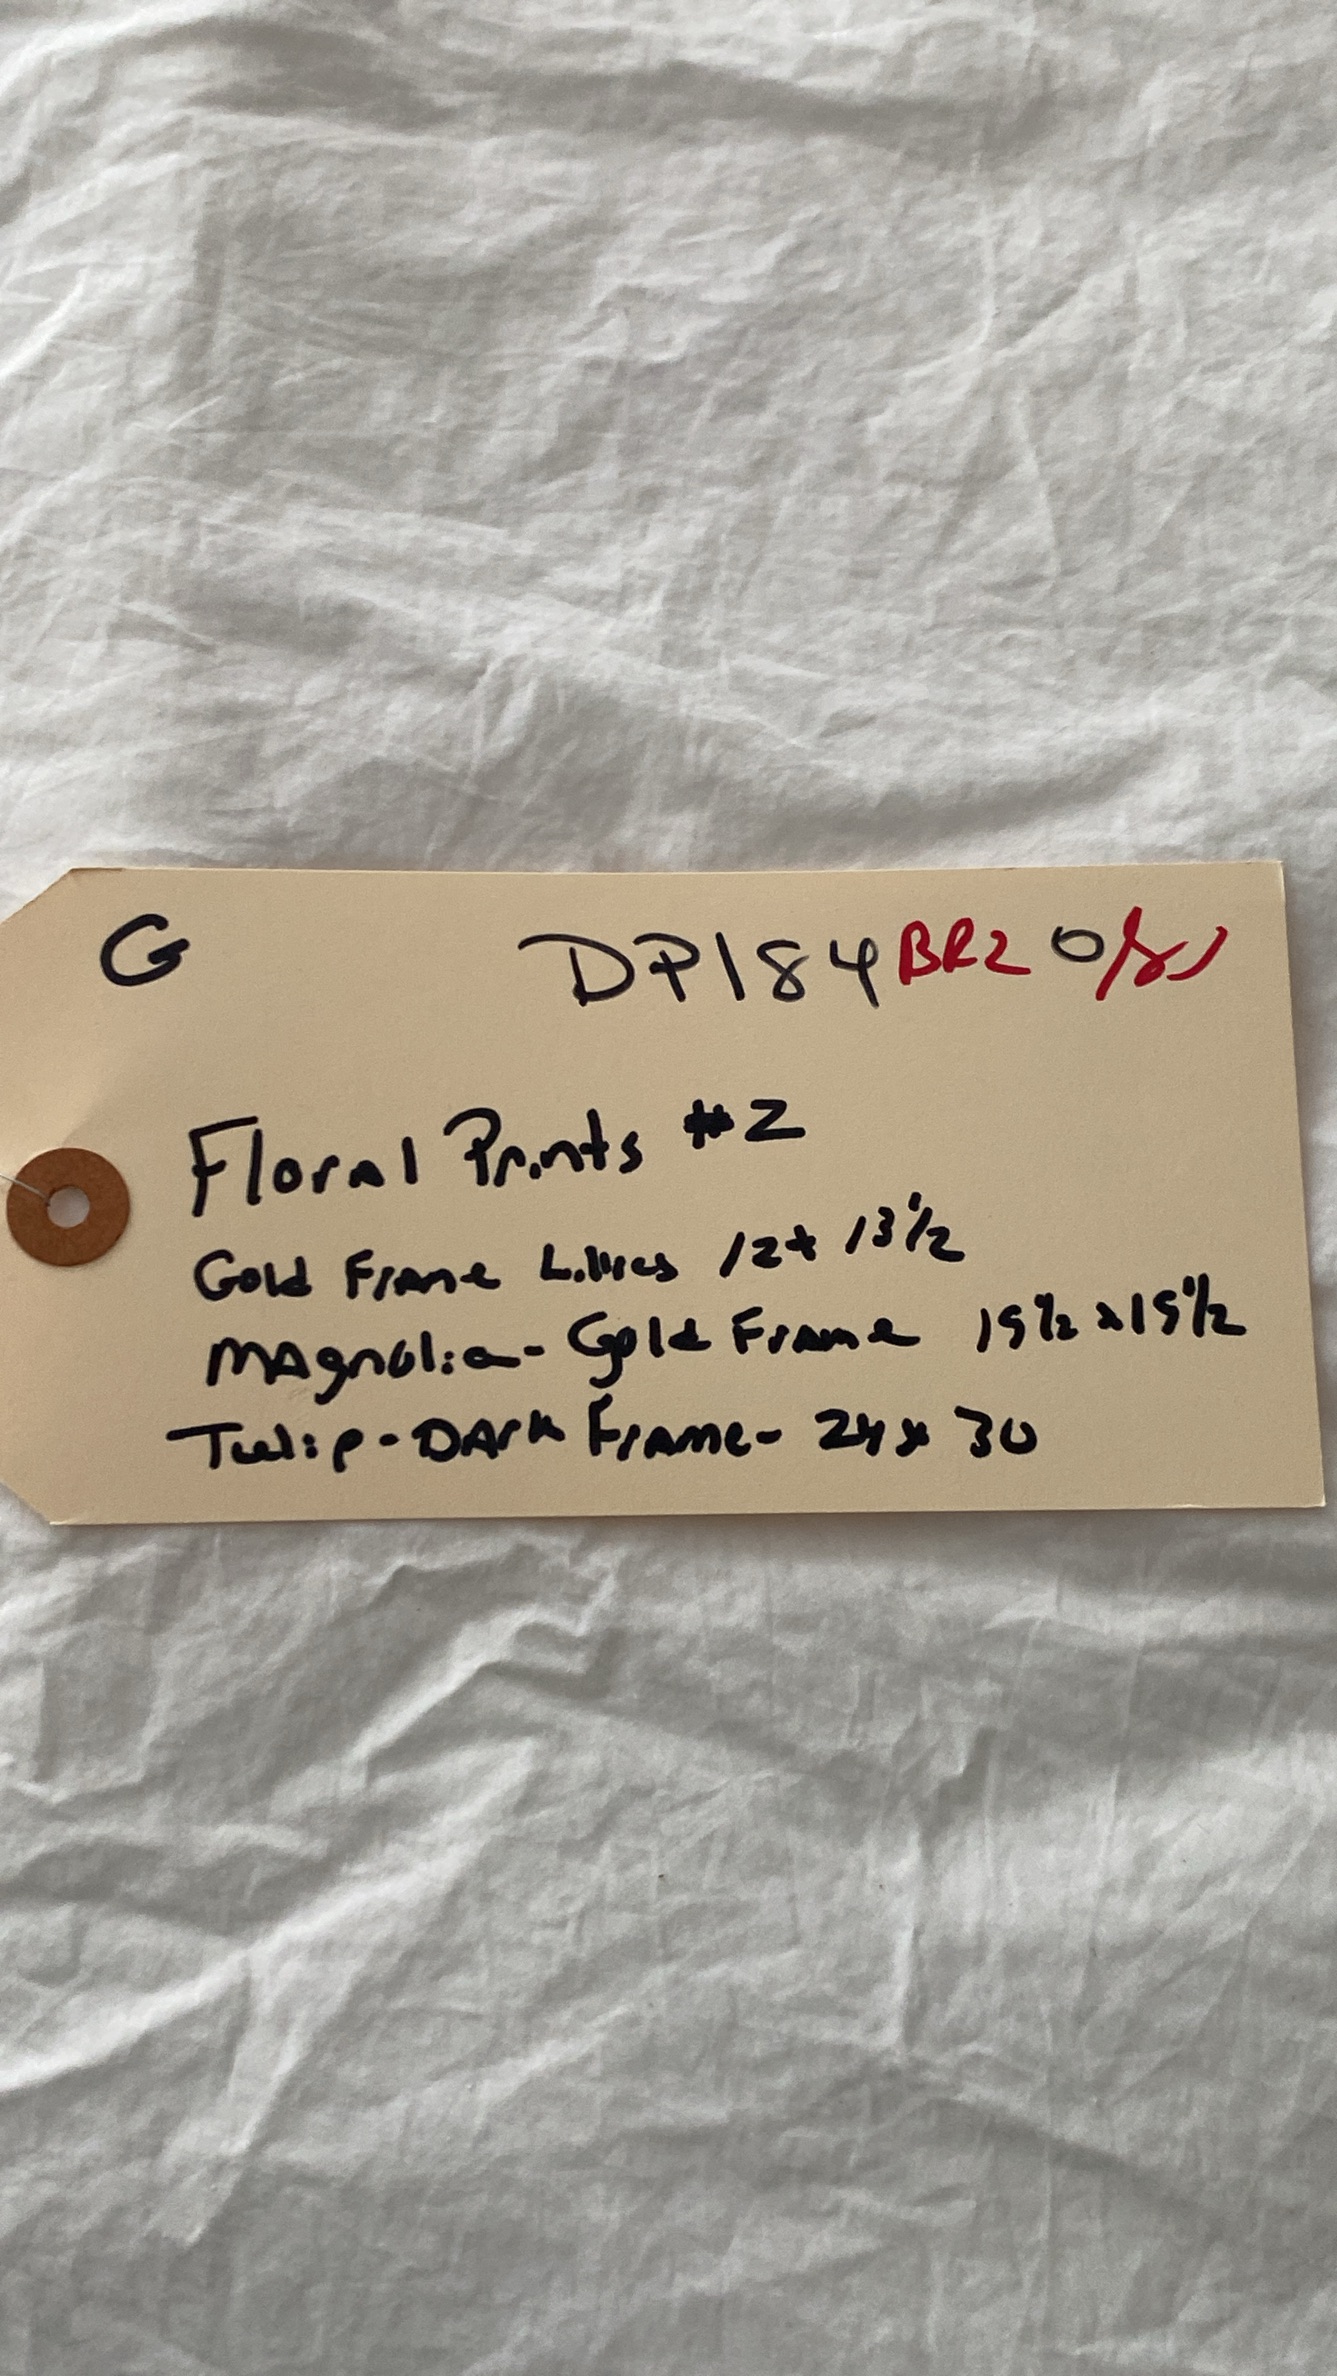 G DP184 BR2
Floral Prints #2
Gold Frame Lillies 12x 13 1/2
MAgnolia- Gold Frame 15 1/2 x 15 1/2
Tulip - DArk Frame - 24 x 30